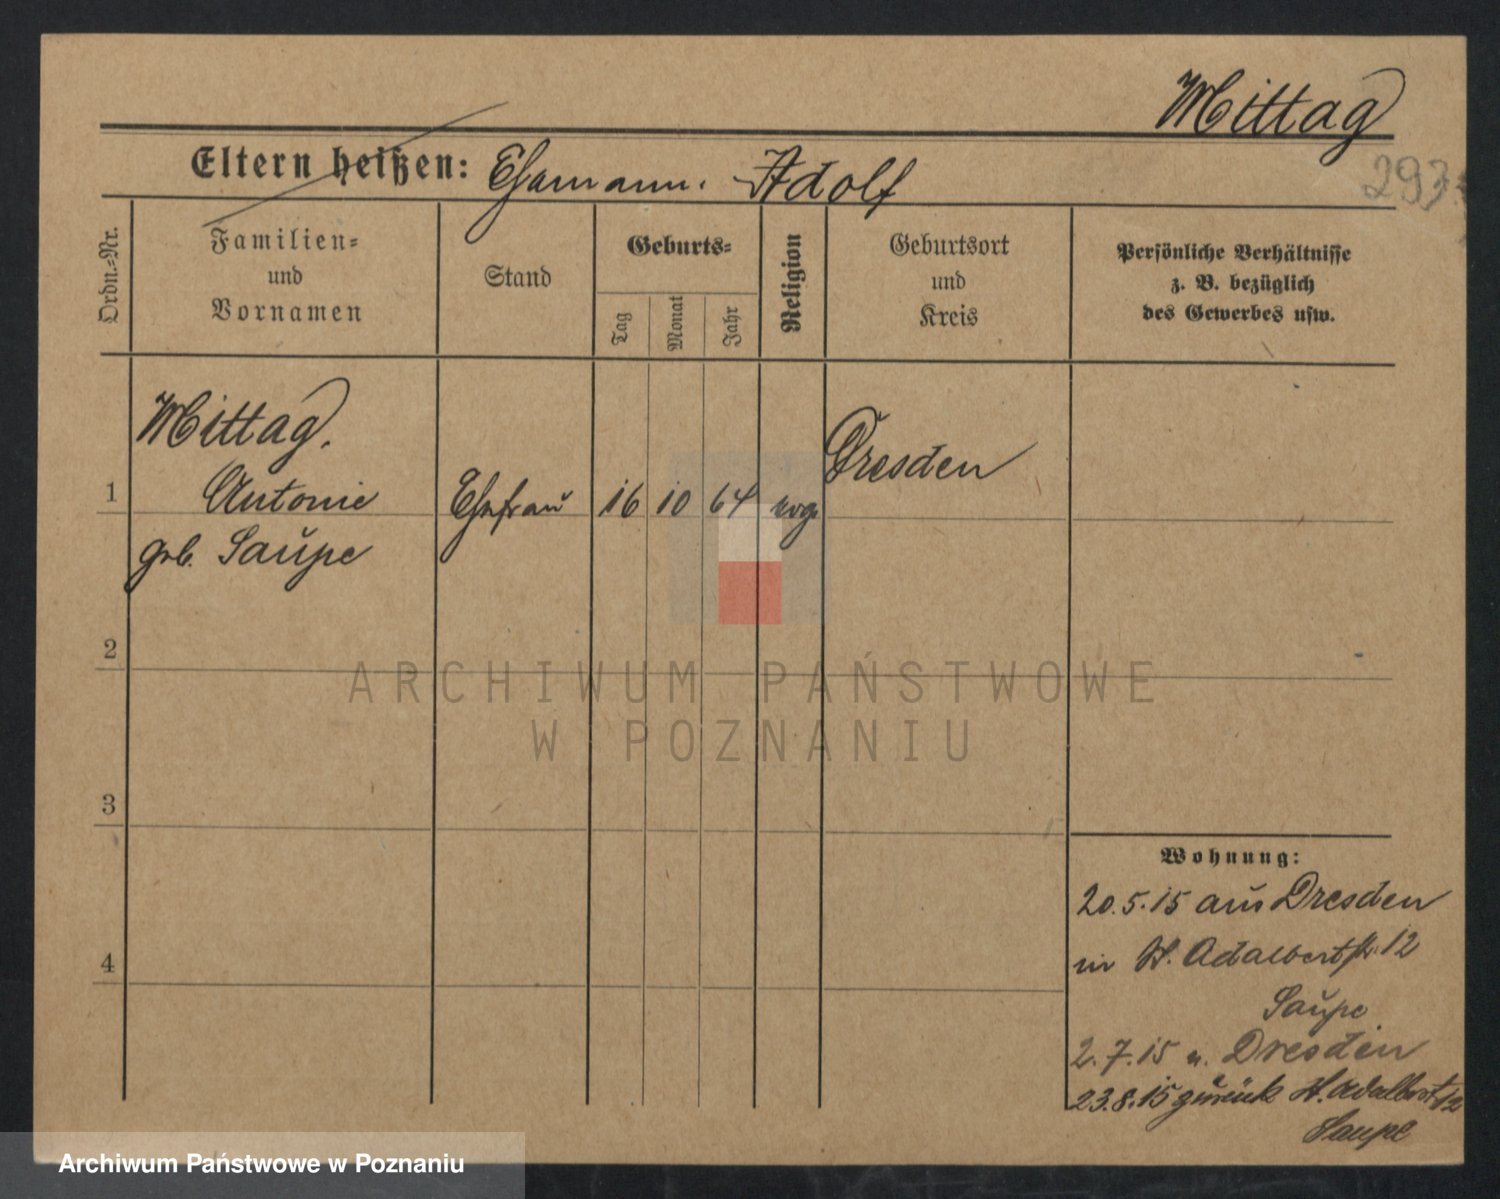 Mittag
293
Eltern heißen: Ehemann. Adolf
Ordn.-Nr.
Familien-
und
Vornamen
Stand
Geburts-
Tag
Monat
Jahr
Religion
Geburtsort
und
Kreis
Persönliche Verhältnisse
z. B. bezüglich
des Gewerbes usw.
Mittag.
1 Antonie Ehefrau 16 10 64 evg. Dresden
geb. Saupe
2
3
4
Wohnung:
20.5.15 aus Dresden
in W. Adalbertstr. 12
Saupe
2.7.15 n. Dresden
23.8.15 zurück W. Adalbertst 12
Saupe
ARCHIWUM PAŃSTWOWE
W POZNANIU
Archiwum Państwowe w Poznaniu